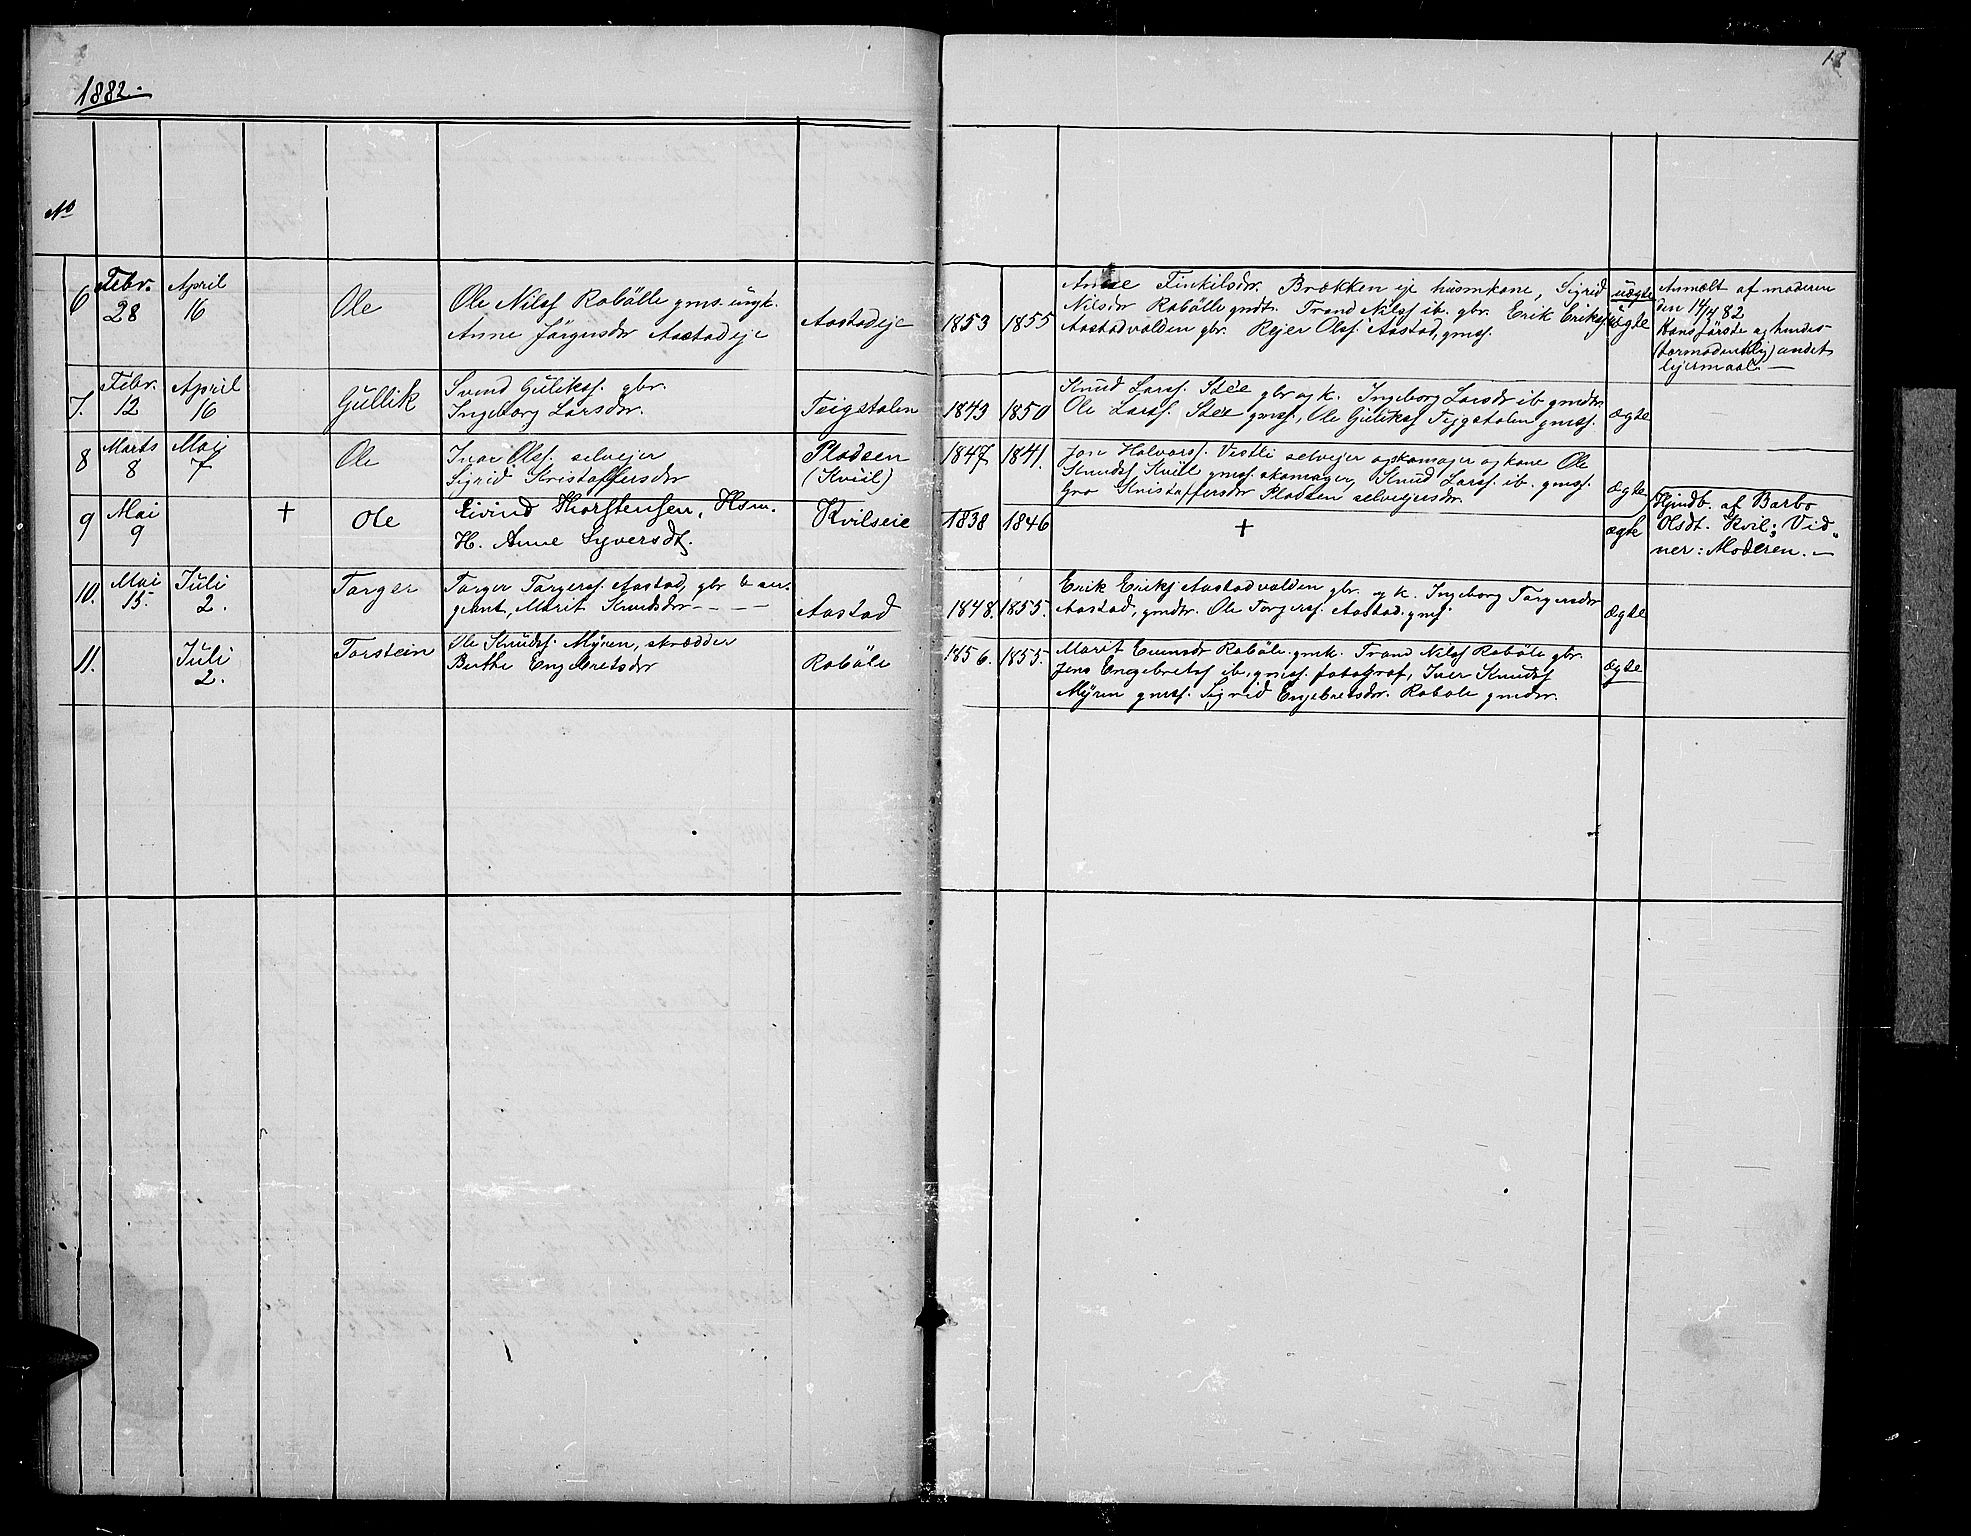 18
1882.
No
6 Febr. 28 April 16 Ole
Ole Nilsf Robölle gms. ungk.
Anne Jörgensdr Aastadeje
Aastadeje
1853 1855
Anne Finkilsdr. Brækken eje husmkone, Sigrid
Nilsdr Robölle gmdt. Trond Nilsf ib. gbr. Erik Eriksf.
Aastadvolden gbr. Rejer Olsf. Aastad, gmsf.
uægte
ægte
Anmælt af moderen
den 14/4 82
Hans förste og hendes
(formodentlig) andet
lejermaal. —
7. Febr. 12 April 16 Gullik
Svend Guliksf. gbr.
Ingeborg Larsdr.
Teigstolen
1843 1850
Knud Larsf. Stèe gbr og k. Ingeborg Larsdr ib. gmdtr.
Ole Larsf. Stèe gmsf, Ole Guliksf Tejgstolen gmsf.
ægte
8 Marts 8 Maj 7 Ole
Ivar Olsf. selvejer
Sigrid Kristoffersdr
Pladsen
(Kviil)
1847 1841.
Jon Halvorsf. Vestli selvejer og skomager og kone Ole
Knudsf Kviil gmsf. skomager, Knud Larsf. ib. gmsf.
Gro Kristoffersdr Pladsen selvejersdr.
ægte
9 Mai 9 + Ole
Eivind Thorstensen, Hsm.
H. Anne Syversdt.
Kvilseie
1838 1846
+
ægte
Hjmdb. af Barbo
Olsdt. Kvil; Vid-
ner: Moderen. —
10. Mai 15. Juli 2. Torger
Torger Torgersf. Aastad, gbr & ser-
geant, Marit Knudsdr - - - -
Aastad
1848. 1855.
Erik Eriksf Aastadvolden gbr. og k. Ingeborg Torgersdr
Aastad, gmdtr. Ole Torgersf. Aastad, gmsf.
ægte
11. Juli 2. Torstein
Ole Knudsf. Myren, skrædder
Berthe Engebretsdr
Roböle
1856. 1855.
Marit Evensdr Roböle gmk. Trond Nilsf Roböle gbr.
Jens Engebretsf ib, gmsf. fotograf, Iver Knudsf
Myren gmsf. Sigrid Engebretsdr. Roböle gmdtr.
ægte